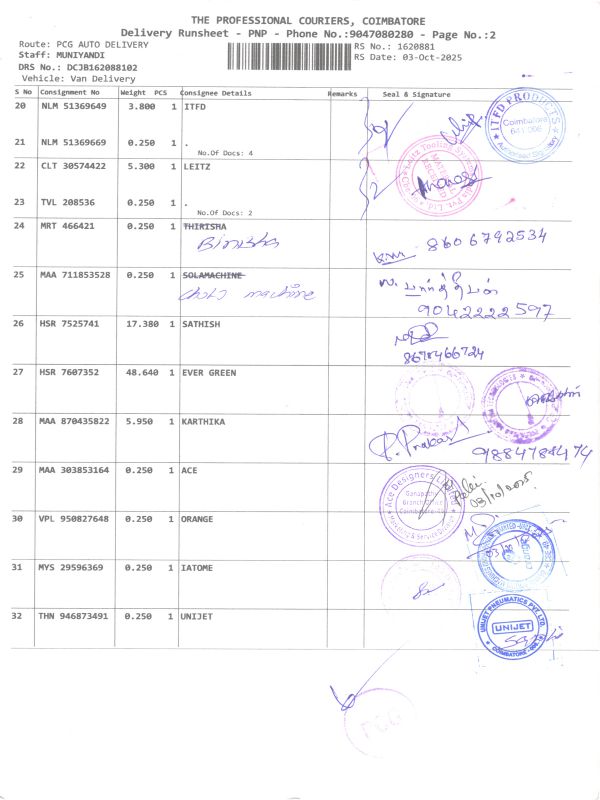 THE PROFESSIONAL COURIERS, COIMBATORE
Delivery Runsheet - PNP - Phone No.:9047080280 - Page No.:2
Route: PCG AUTO DELIVERY
RS No.: 1620881
Staff: MUNIYANDI
RS Date: 03-Oct-2025
DRS No.: DCJB162088102
Vehicle: Van Delivery
S No Consignment No Weight PCS Consignee Details Remarks Seal & Signature
20 NLM 51369649 3.800 1 ITFD
ITFD PRODUCTS
Coimbatore
641 006
Authorised Signatory
21 NLM 51369669 0.250 1 .
No.Of Docs: 4
22 CLT 30574422 5.300 1 LEITZ
Leitz Tooling
23 TVL 208536 0.250 1 .
No.Of Docs: 2
24 MRT 466421 0.250 1 THIRISHA
8606792534
25 MAA 711853528 0.250 1 SOLAMACHINE
9042222597
26 HSR 7525741 17.380 1 SATHISH
8678466724
27 HSR 7607352 48.640 1 EVER GREEN
28 MAA 870435822 5.950 1 KARTHIKA
P. Prakash
9884788474
29 MAA 303853164 0.250 1 ACE
Ace Designers Limited
Ganapathi
Branch Office
Coimbatore
03/10/2025
30 VPL 950827648 0.250 1 ORANGE
31 MYS 29596369 0.250 1 IATOME
32 THN 946873491 0.250 1 UNIJET
UNIJET PNEUMATICS PVT LTD.
UNIJET
COIMBATORE
PCG